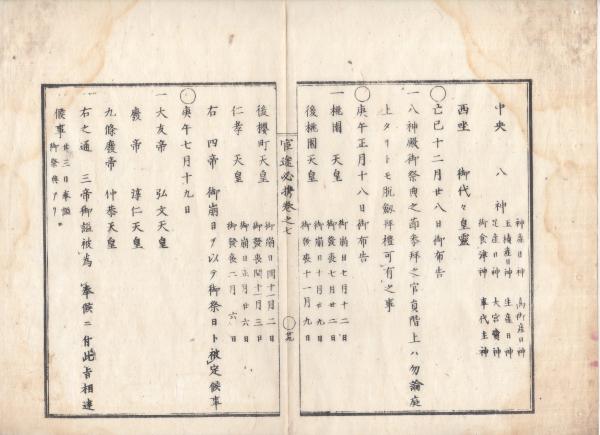 中央 八神
神産日神 高御産日神
玉積産日神 生産日神
足産日神 大宮賣神
御食津神 事代主神
西坐 御代々皇霊
◯己巳十二月廿八日御布告
一八神殿御祭典之節参拝之官員階上ハ勿論庭
上タリトモ脱劔拝禮可有之事
◯庚午正月十八日御布告
一桃園 天皇 御崩日七月十二日
御發喪七月廿二日
後桃園天皇 御崩日十月廿九日
御發喪十一月九日
官途必携巻之七
◯
後櫻町天皇 御崩日閏十一月二日
御發喪閏十一月三日
仁孝 天皇 御崩日正月廿六日
御發喪二月六日
右 四帝 御崩日ヲ以テ御祭日ト被定候事
◯庚午七月十九日
一大友帝 弘文天皇
廢帝 淳仁天皇
九條廢帝 仲恭天皇
右之通 三帝御謚被為 奉候ニ付此旨相達
候事 廿三日奉謚
御祭典アリ